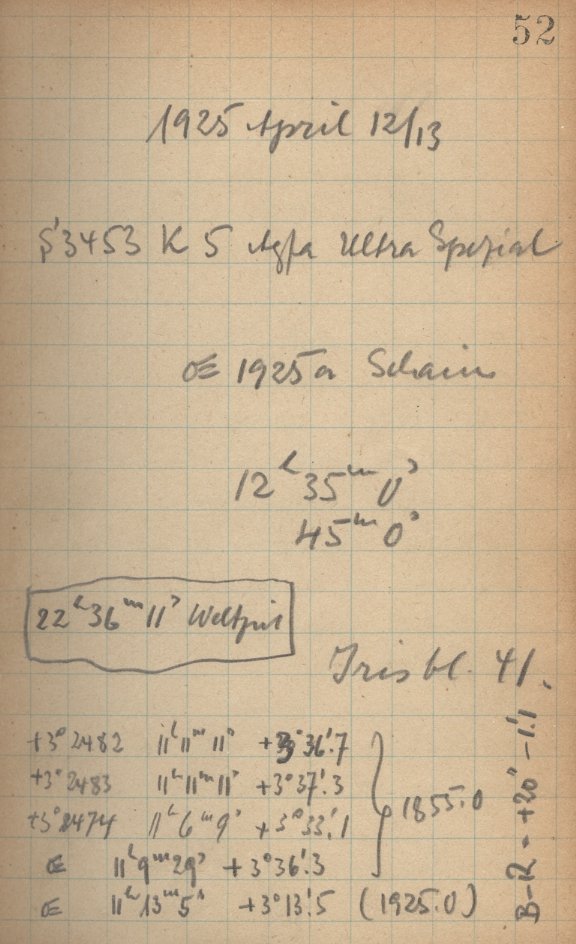 52
1925 April 12/13
S3453 K 5 Agfa Ultra Spezial
☄ 1925a Schain
12ʰ 35ᵐ 0ˢ
45ᵐ 0ˢ
22ʰ 36ᵐ 11ˢ Weltzeit
Irisbl. 41.
+3° 2482 11ʰ 11ᵐ 11ˢ +3° 36'.7
+3° 2483 11ʰ 11ᵐ 11ˢ +3° 37'.3
+3° 2474 11ʰ 6ᵐ 9ˢ +3° 33'.1
1855.0
☄ 11ʰ 9ᵐ 29ˢ +3° 36'.3
☄ 11ʰ 13ᵐ 5ˢ +3° 13'.5 (1925.0)
B-R = +20ˢ -1'.1